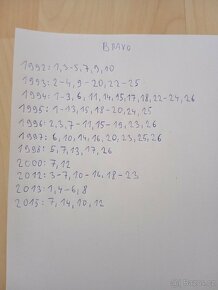 BRAVO
1992: 1,3-5,7,9,10
1993: 2-4,9-20,22-25
1994: 1-3,6,11,14,15,17,18,22-24,26
1995: 1-13,15,18-20,24,25
1996: 2,3,7-11,15-19,23,26
1997: 6,10,14,16,20,23,25,26
1998: 5,7,13,17,26
2000: 7,12
2012: 3-7,10-14,18-23
2013: 1,4-6,8
2015: 7,14,10,12